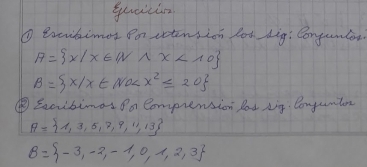 Ejercicios
① Escribimos Por extensión los sig: Conjuntos.
A = {x/x ∈ IN ∧ x < 10}
B = {x/x ∈ N0 < x² ≤ 20}
② Escribimos Por Comprensión los sig. Conjuntos
A = {1, 3, 5, 7, 9, 11, 13}
B = {-3, -2, -1, 0, 1, 2, 3}